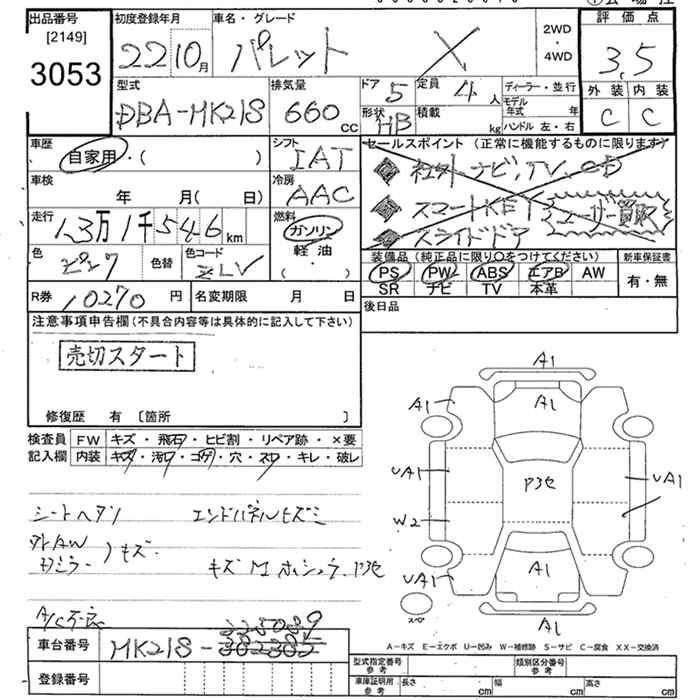 出品番号
[2149]
3053
初度登録年月
22 10月
車名・グレード
パレット X
2WD
・
4WD
評価点
3,5
外装 内装
C C
型式
DBA-MK21S
排気量
660 cc
ドア 5
形状 HB
定員 4 人
積載 kg
ディーラー・並行
モデル年式 年
ハンドル 左・右
車歴
自家用・( )
シフト
IAT
セールスポイント (正常に機能するものに限ります)
社外ナビ,TV,CD
スマートKEY
スライドドア
ユーザー買取
車検
年 月( 日)
冷房
AAC
走行
13万1千546 km
燃料
ガソリン
軽油
・( )
色
ピンク
色替
色コード
ZLV
装備品 (純正品に限り○をつけてください)
PS PW ABS エアB AW
SR ナビ TV 本革
新車保証書
有・無
R券 10270 円
名変期限 月 日
後日品
注意事項申告欄 (不具合内容等は具体的に記入して下さい)
売切スタート
修復歴 有 〔箇所 〕
検査員記入欄
FW キズ・飛石・ヒビ割・リペア跡・×要
内装 キズ・汚れ・コゲ・穴・スレ・キレ・破レ
シートヘタリ エンドパネルヒズミ
外AW
ドアミラー )キズ
A/C不良
A1
A1 A1
UA1 P3セ UA1
W2
A1
UA1
スペア
A1
A-キズ E-エクボ U-凹み W-補修跡 S-サビ C-腐食 XX-交換済
車台番号
MK21S-
登録番号
型式指定番号
参考
類別区分番号
参考
車庫証明用
参考
長さ cm 幅 cm 高さ cm